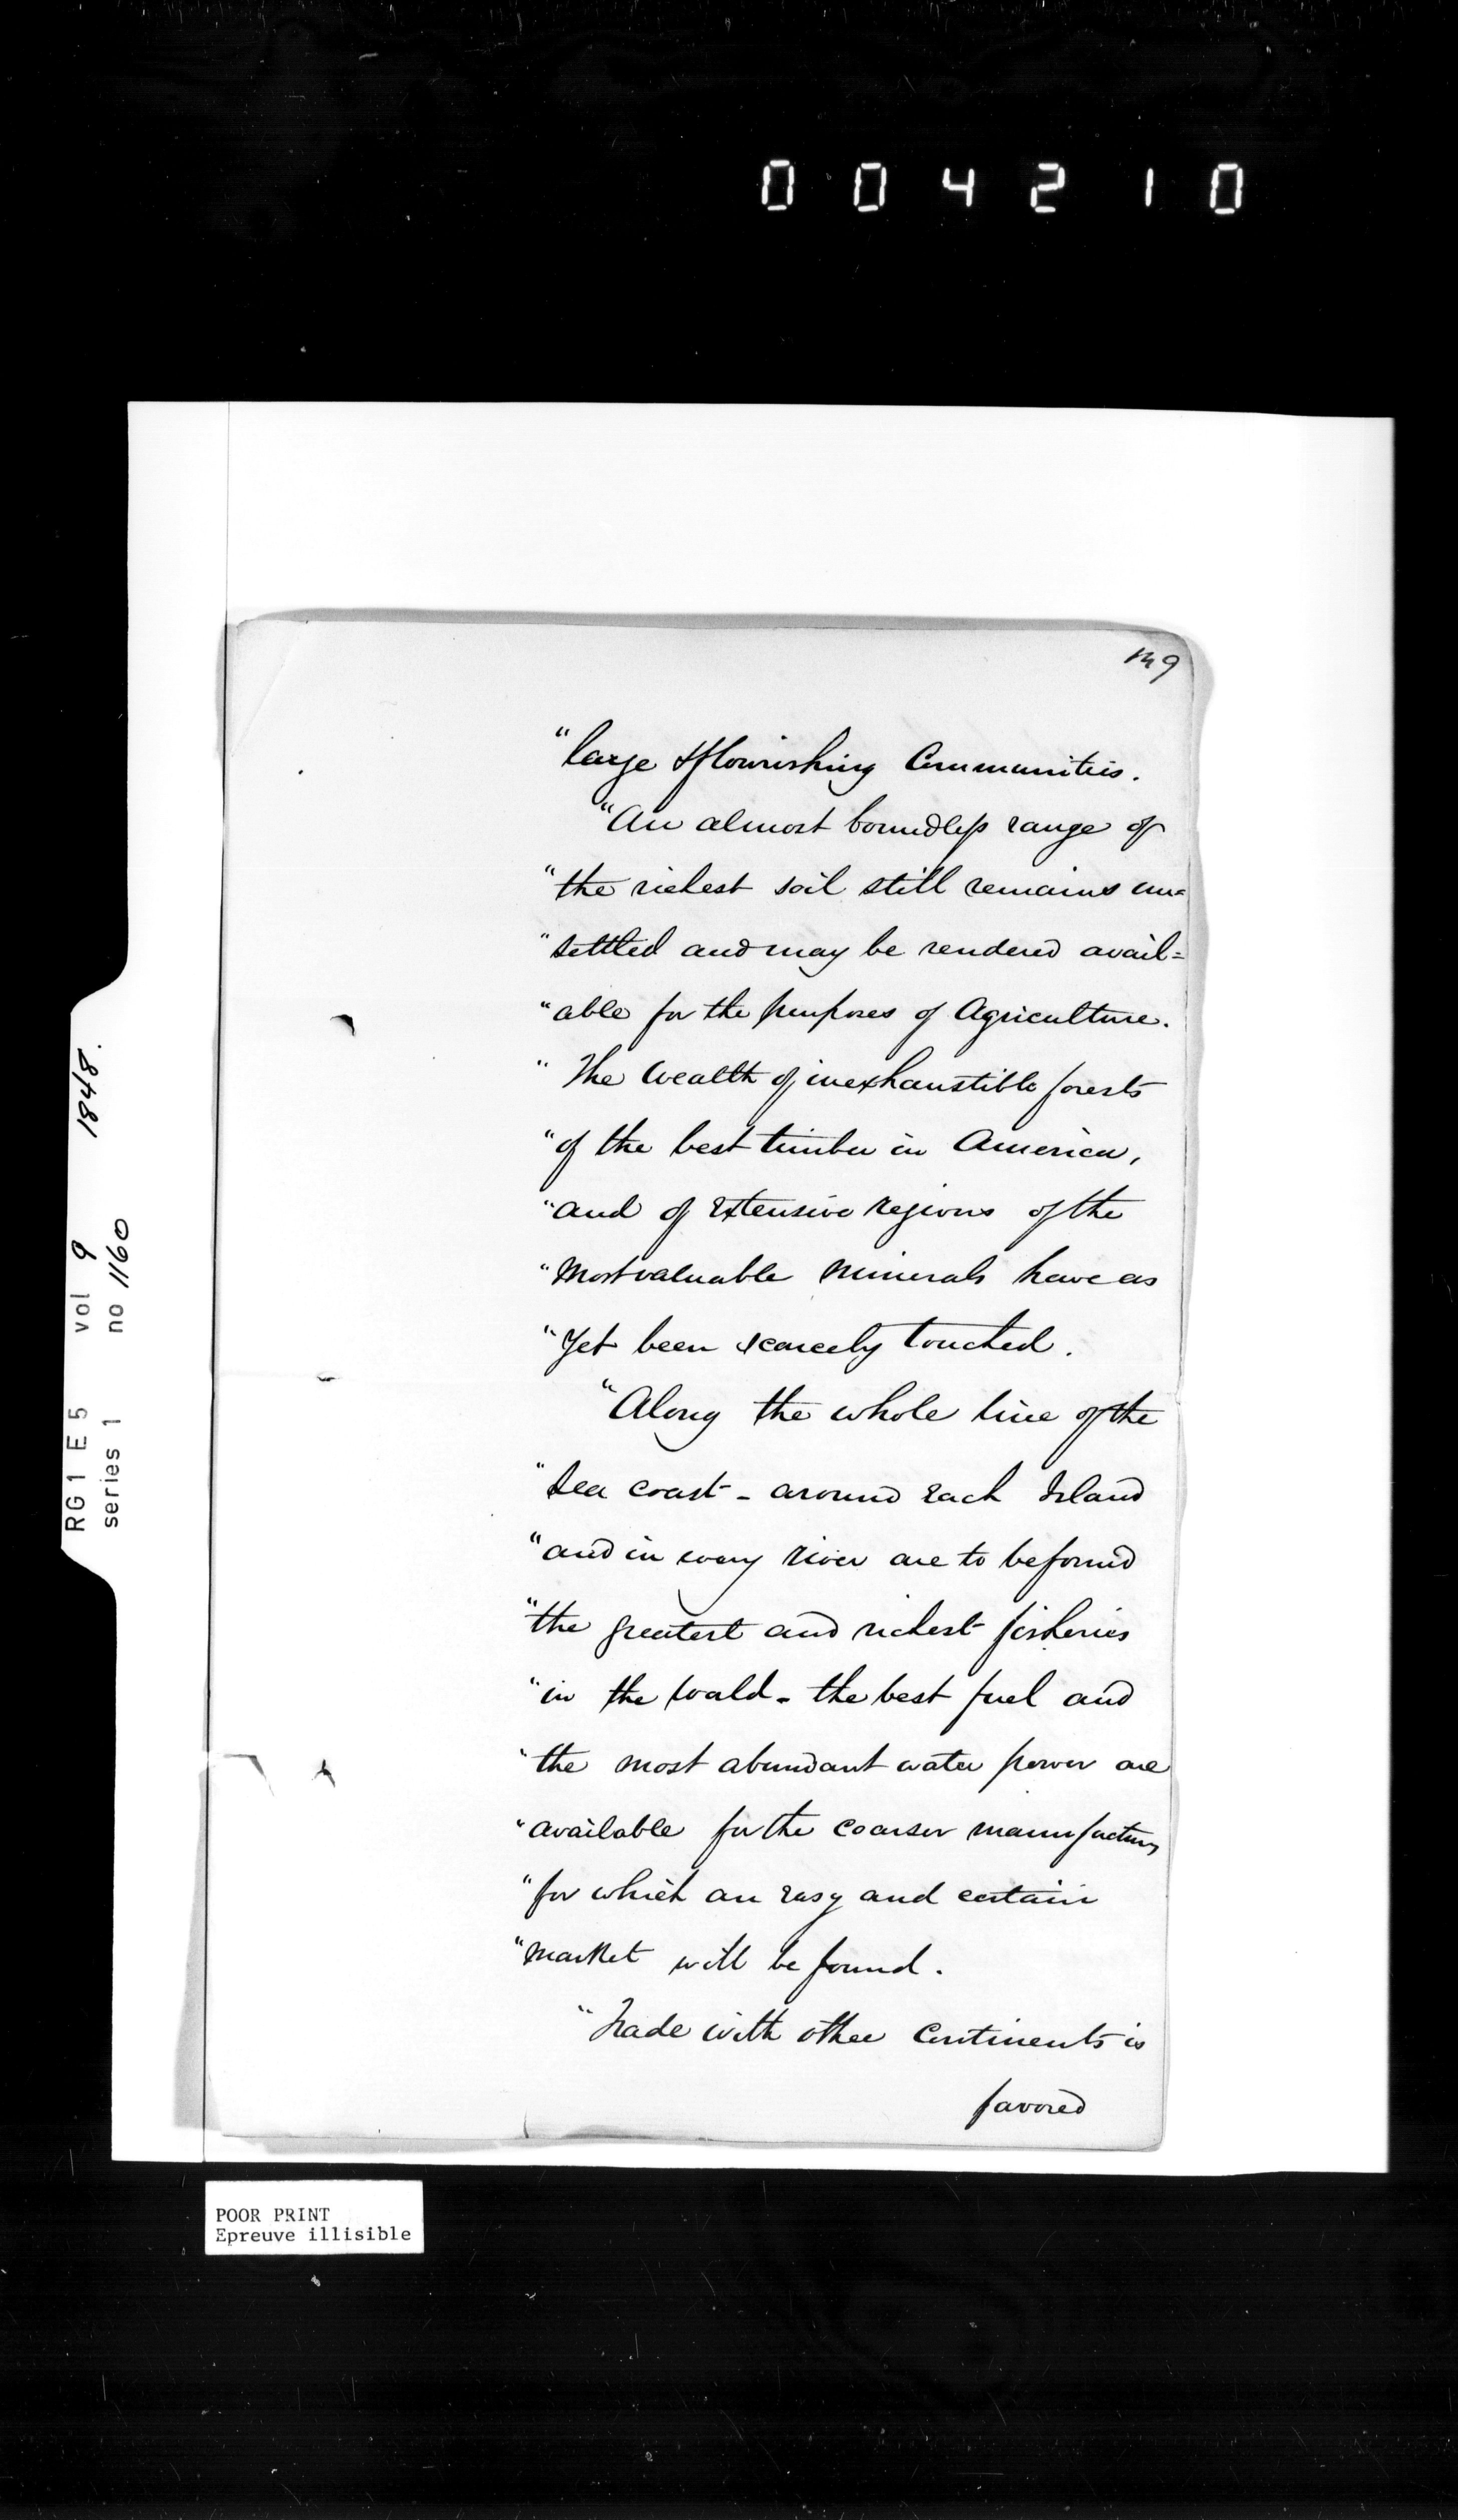 004210
149
"large & flourishing Communities.
"An almost boundless range of
"the richest soil still remains un=
"settled and may be rendered avail=
"able for the purposes of Agriculture.
"The Wealth of inexhaustible forests
"of the best timber in America,
"and of extensive regions of the
"most valuable minerals have as
"yet been scarcely touched.
"Along the whole line of the
"Sea coast - around each Island
"and in every river are to be found
"the greatest and richest fisheries
"in the World - the best fuel and
"the most abundant water power are
"available for the coarser manufactures
"for which an easy and certain
"market will be found.
"Trade with other Continents is
favored
RG 1 E 5 vol 9 1848.
series 1 no 1160
POOR PRINT
Epreuve illisible